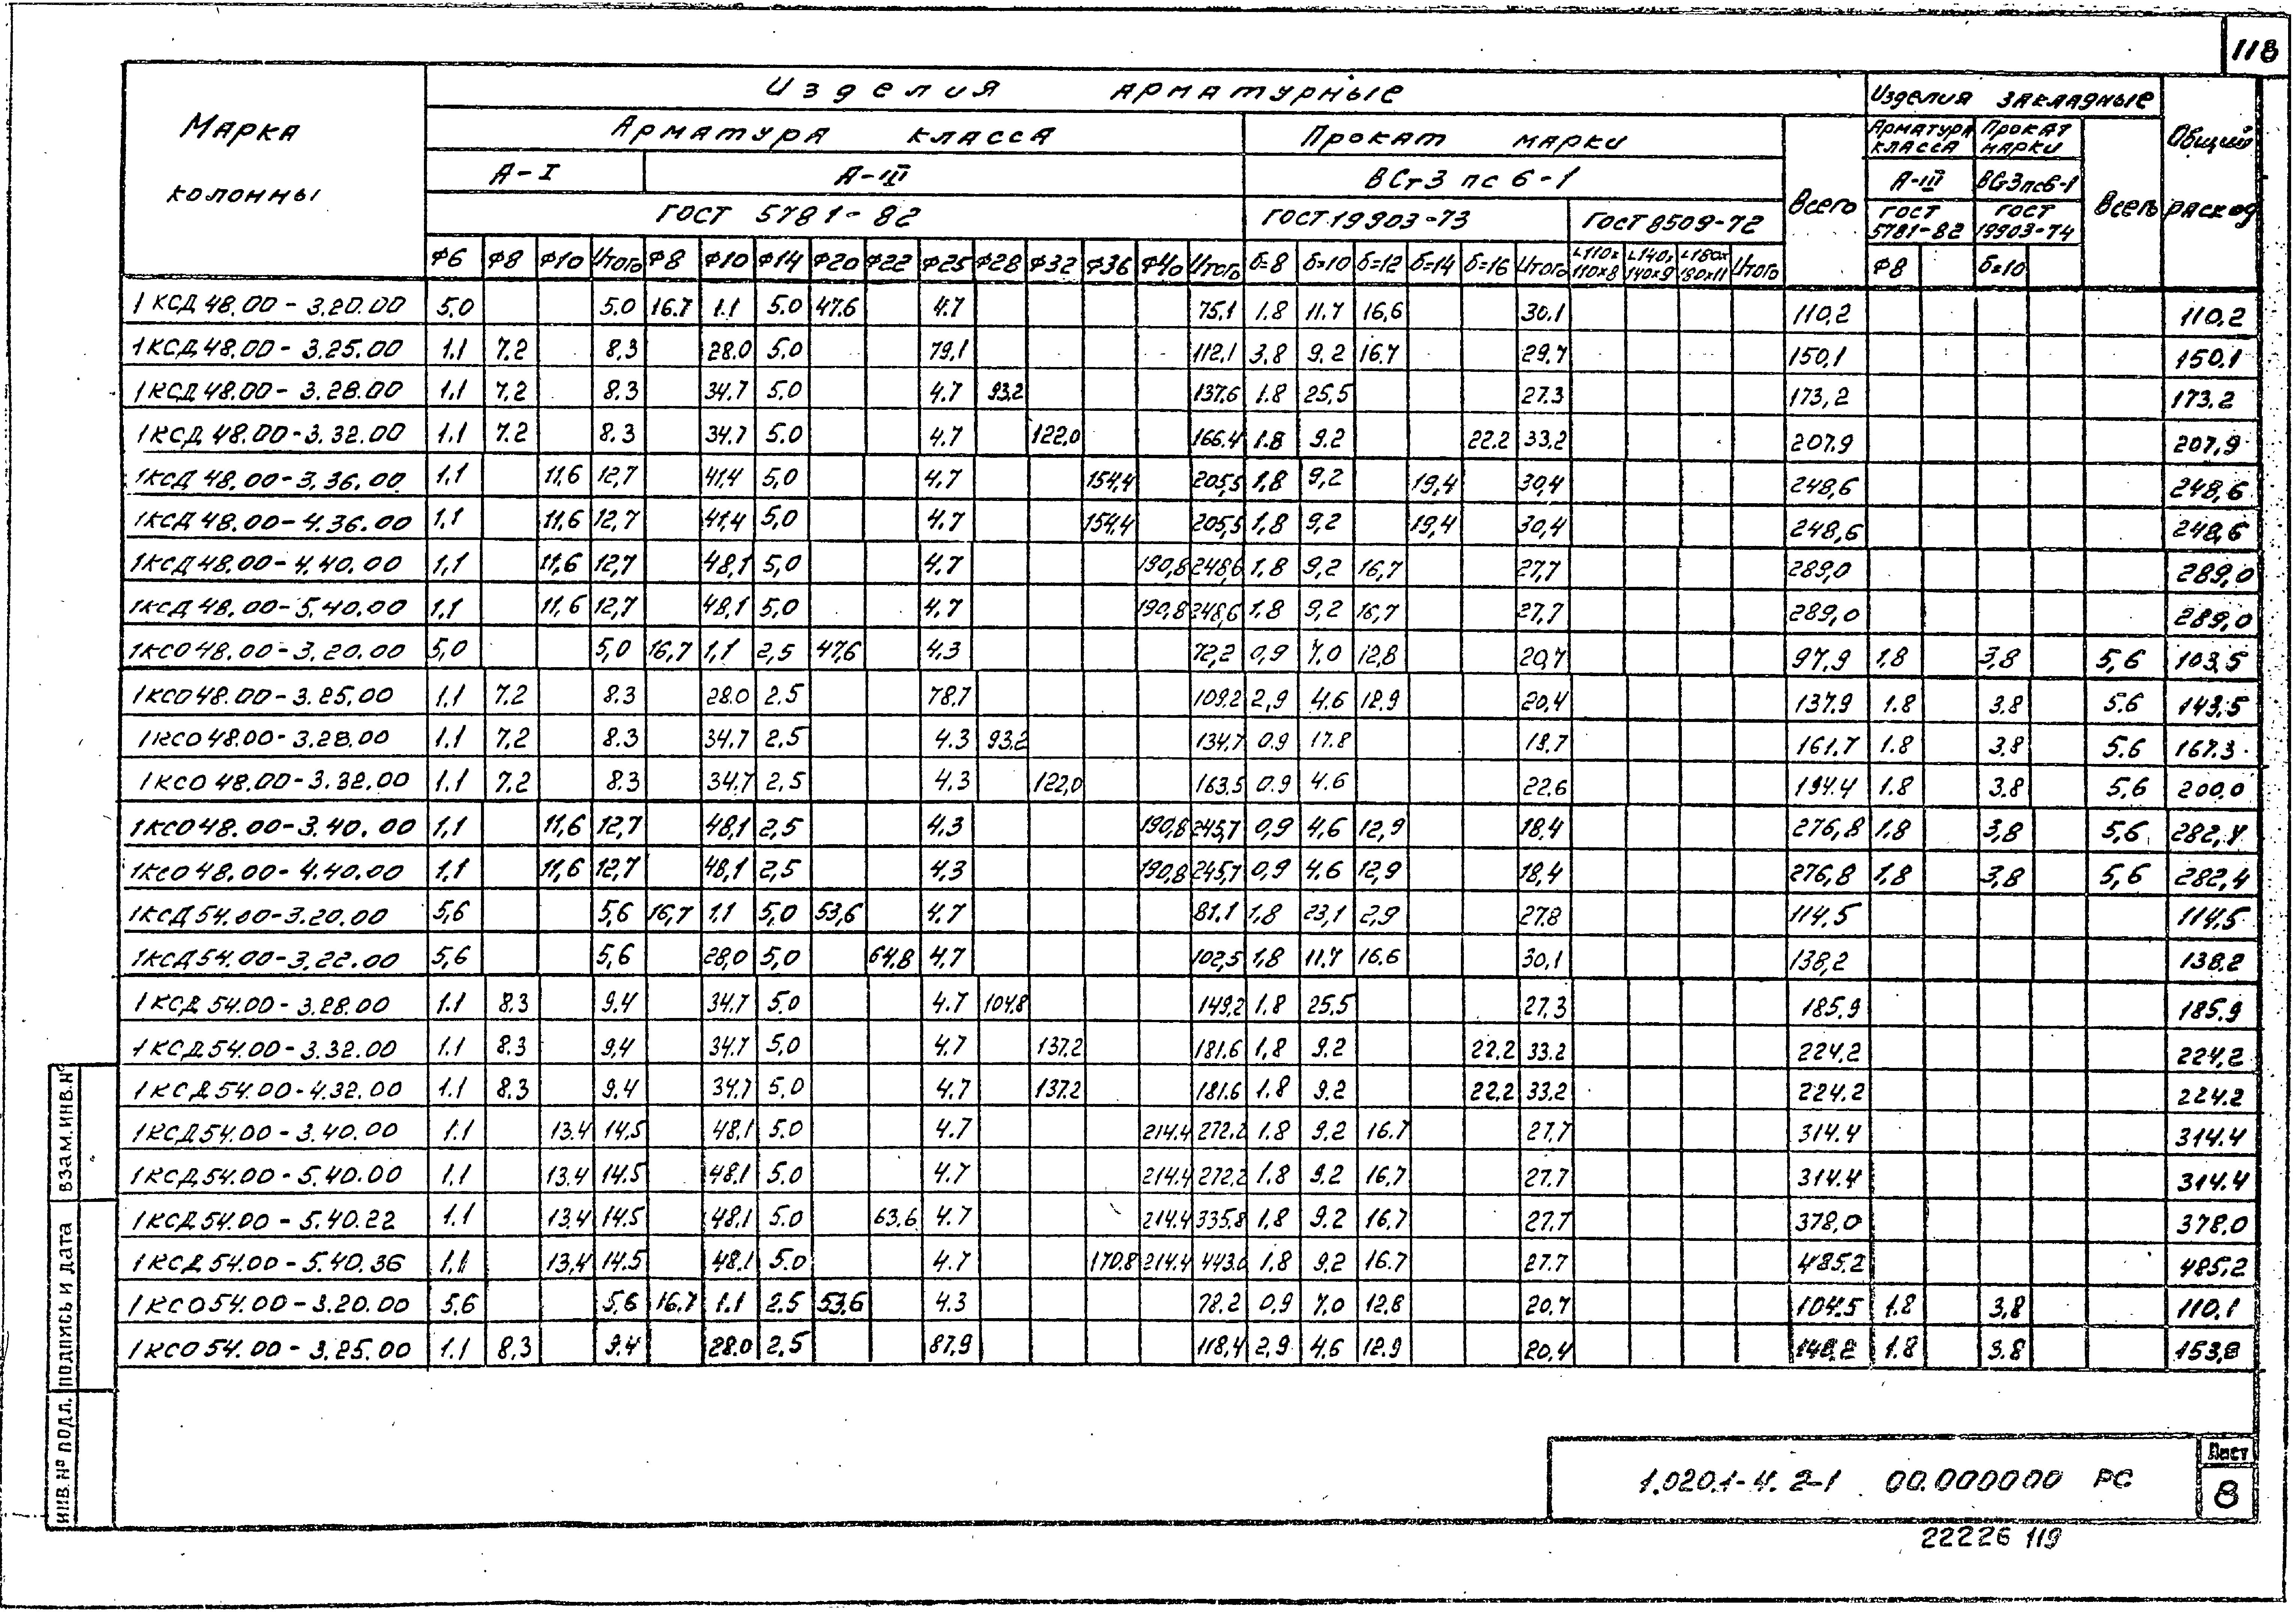 118
Марка колонны
Изделия арматурные
Изделия закладные
Общий расход
Арматура класса
Прокат марки
Всего
Арматура класса
Прокат марки
Всего
А-I
А-III
ВСт3 пс 6-1
А-III
ВСт3пс6-1
ГОСТ 5781-82
ГОСТ 19903-73
ГОСТ 8509-72
ГОСТ 5781-82
ГОСТ 19903-74
Ф6 Ф8 Ф10 Итого Ф8 Ф10 Ф14 Ф20 Ф22 Ф25 Ф28 Ф32 Ф36 Ф40 Итого б=8 б=10 б=12 б=14 б=16 Итого L110х110х8 L140х140х9 L180х180х11 Итого Ф8 б=10
1КСД 48.00-3.20.00 5.0 5.0 16.7 1.1 5.0 47.6 4.7 75.1 1.8 11.7 16,6 30.1 110,2 110,2
1КСД 48.00-3.25.00 1.1 7.2 8.3 28.0 5.0 79,1 112,1 3,8 9.2 16,7 29,7 150,1 150,1
1КСД 48.00-3.28.00 1.1 7.2 8.3 34.7 5.0 4.7 93.2 137,6 1.8 25,5 27.3 173,2 173.2
1КСД 48.00-3.32.00 1.1 7.2 8.3 34.7 5.0 4.7 122.0 166.4 1.8 9.2 22.2 33.2 207.9 207,9
1КСД 48.00-3.36.00 1.1 11,6 12,7 41,4 5,0 4.7 154,4 205,5 1,8 9,2 19,4 30,4 248,6 248,6
1КСД 48.00-4.36.00 1,1 11,6 12,7 41,4 5,0 4,7 154,4 205,5 1,8 9,2 19,4 30,4 248,6 248,6
1КСД 48.00-4.40.00 1,1 11,6 12,7 48,1 5,0 4.7 190,8 248,6 1,8 9,2 16,7 27,7 289,0 289,0
1КСД 48.00-5.40.00 1,1 11,6 12,7 48,1 5,0 4,7 190,8 248,6 1,8 9,2 16,7 27,7 289,0 289,0
1КСО 48.00-3.20.00 5,0 5,0 16,7 1,1 2,5 47,6 4,3 72,2 0,9 7,0 12,8 20,7 97,9 1,8 3,8 5,6 103,5
1КСО 48.00-3.25.00 1,1 7.2 8.3 28.0 2.5 78.7 109.2 2,9 4.6 12,9 20,4 137.9 1.8 3.8 5.6 143.5
1КСО 48.00-3.28.00 1.1 7,2 8.3 34.7 2.5 4.3 93.2 134,7 0.9 17.8 18.7 161.7 1.8 3.8 5.6 167.3
1КСО 48.00-3.32.00 1.1 7.2 8.3 34.7 2,5 4,3 122,0 163,5 0.9 4.6 22.6 194.4 1.8 3.8 5,6 200.0
1КСО 48.00-3.40.00 1,1 11,6 12,7 48,1 2,5 4.3 190,8 245,7 0,9 4,6 12,9 18,4 276,8 1,8 3,8 5,6 282,4
1КСО 48.00-4.40.00 1,1 11,6 12,7 48,1 2,5 4.3 190,8 245,7 0,9 4,6 12,9 18,4 276,8 1,8 3,8 5,6 282,4
1КСД 54.00-3.20.00 5,6 5,6 16,7 1,1 5,0 53,6 4,7 81,1 1,8 23,1 2,9 27,8 114,5 114,5
1КСД 54.00-3.22.00 5,6 5,6 28,0 5,0 64,8 4,7 102,5 1,8 11,7 16.6 30,1 138,2 138.2
1КСД 54.00-3.28.00 1.1 8.3 9,4 34.7 5.0 4.7 104.8 149,2 1.8 25,5 27.3 185,9 185.9
1КСД 54.00-3.32.00 1.1 8.3 9,4 34.7 5,0 4.7 137.2 181.6 1,8 9.2 22,2 33.2 224,2 224,2
1КСД 54.00-4.32.00 1.1 8.3 9,4 34.7 5.0 4.7 137.2 181.6 1.8 9.2 22,2 33,2 224.2 224.2
1КСД 54.00-3.40.00 1.1 13.4 14,5 48,1 5.0 4.7 214.4 272,2 1.8 9.2 16.7 27,7 314.4 314.4
1КСД 54.00-5.40.00 1.1 13,4 14.5 48,1 5.0 4.7 214.4 272,2 1.8 9.2 16,7 27.7 314.4 314.4
1КСД 54.00-5.40.22 1.1 13,4 14.5 48,1 5.0 63.6 4.7 214.4 335,8 1,8 9.2 16,7 27.7 378,0 378.0
1КСД 54.00-5.40.36 1.1 13,4 14.5 48.1 5.0 4.7 170.8 214.4 443.0 1,8 9,2 16.7 27.7 485.2 485,2
1КСО 54.00-3.20.00 5.6 5,6 16.7 1.1 2.5 53,6 4.3 78.2 0,9 7.0 12,8 20,7 104.5 1.8 3,8 110,1
1КСО 54.00-3.25.00 1.1 8,3 9.4 28.0 2,5 87,9 118,4 2,9 4.6 12.9 20,4 148.2 1.8 3.8 153,8
1.020.1-4. 2-1 00.000000 РС
Лист
8
22226 119
ИНВ.№ ПОДЛ.
ПОДПИСЬ И ДАТА
ВЗАМ.ИНВ.№